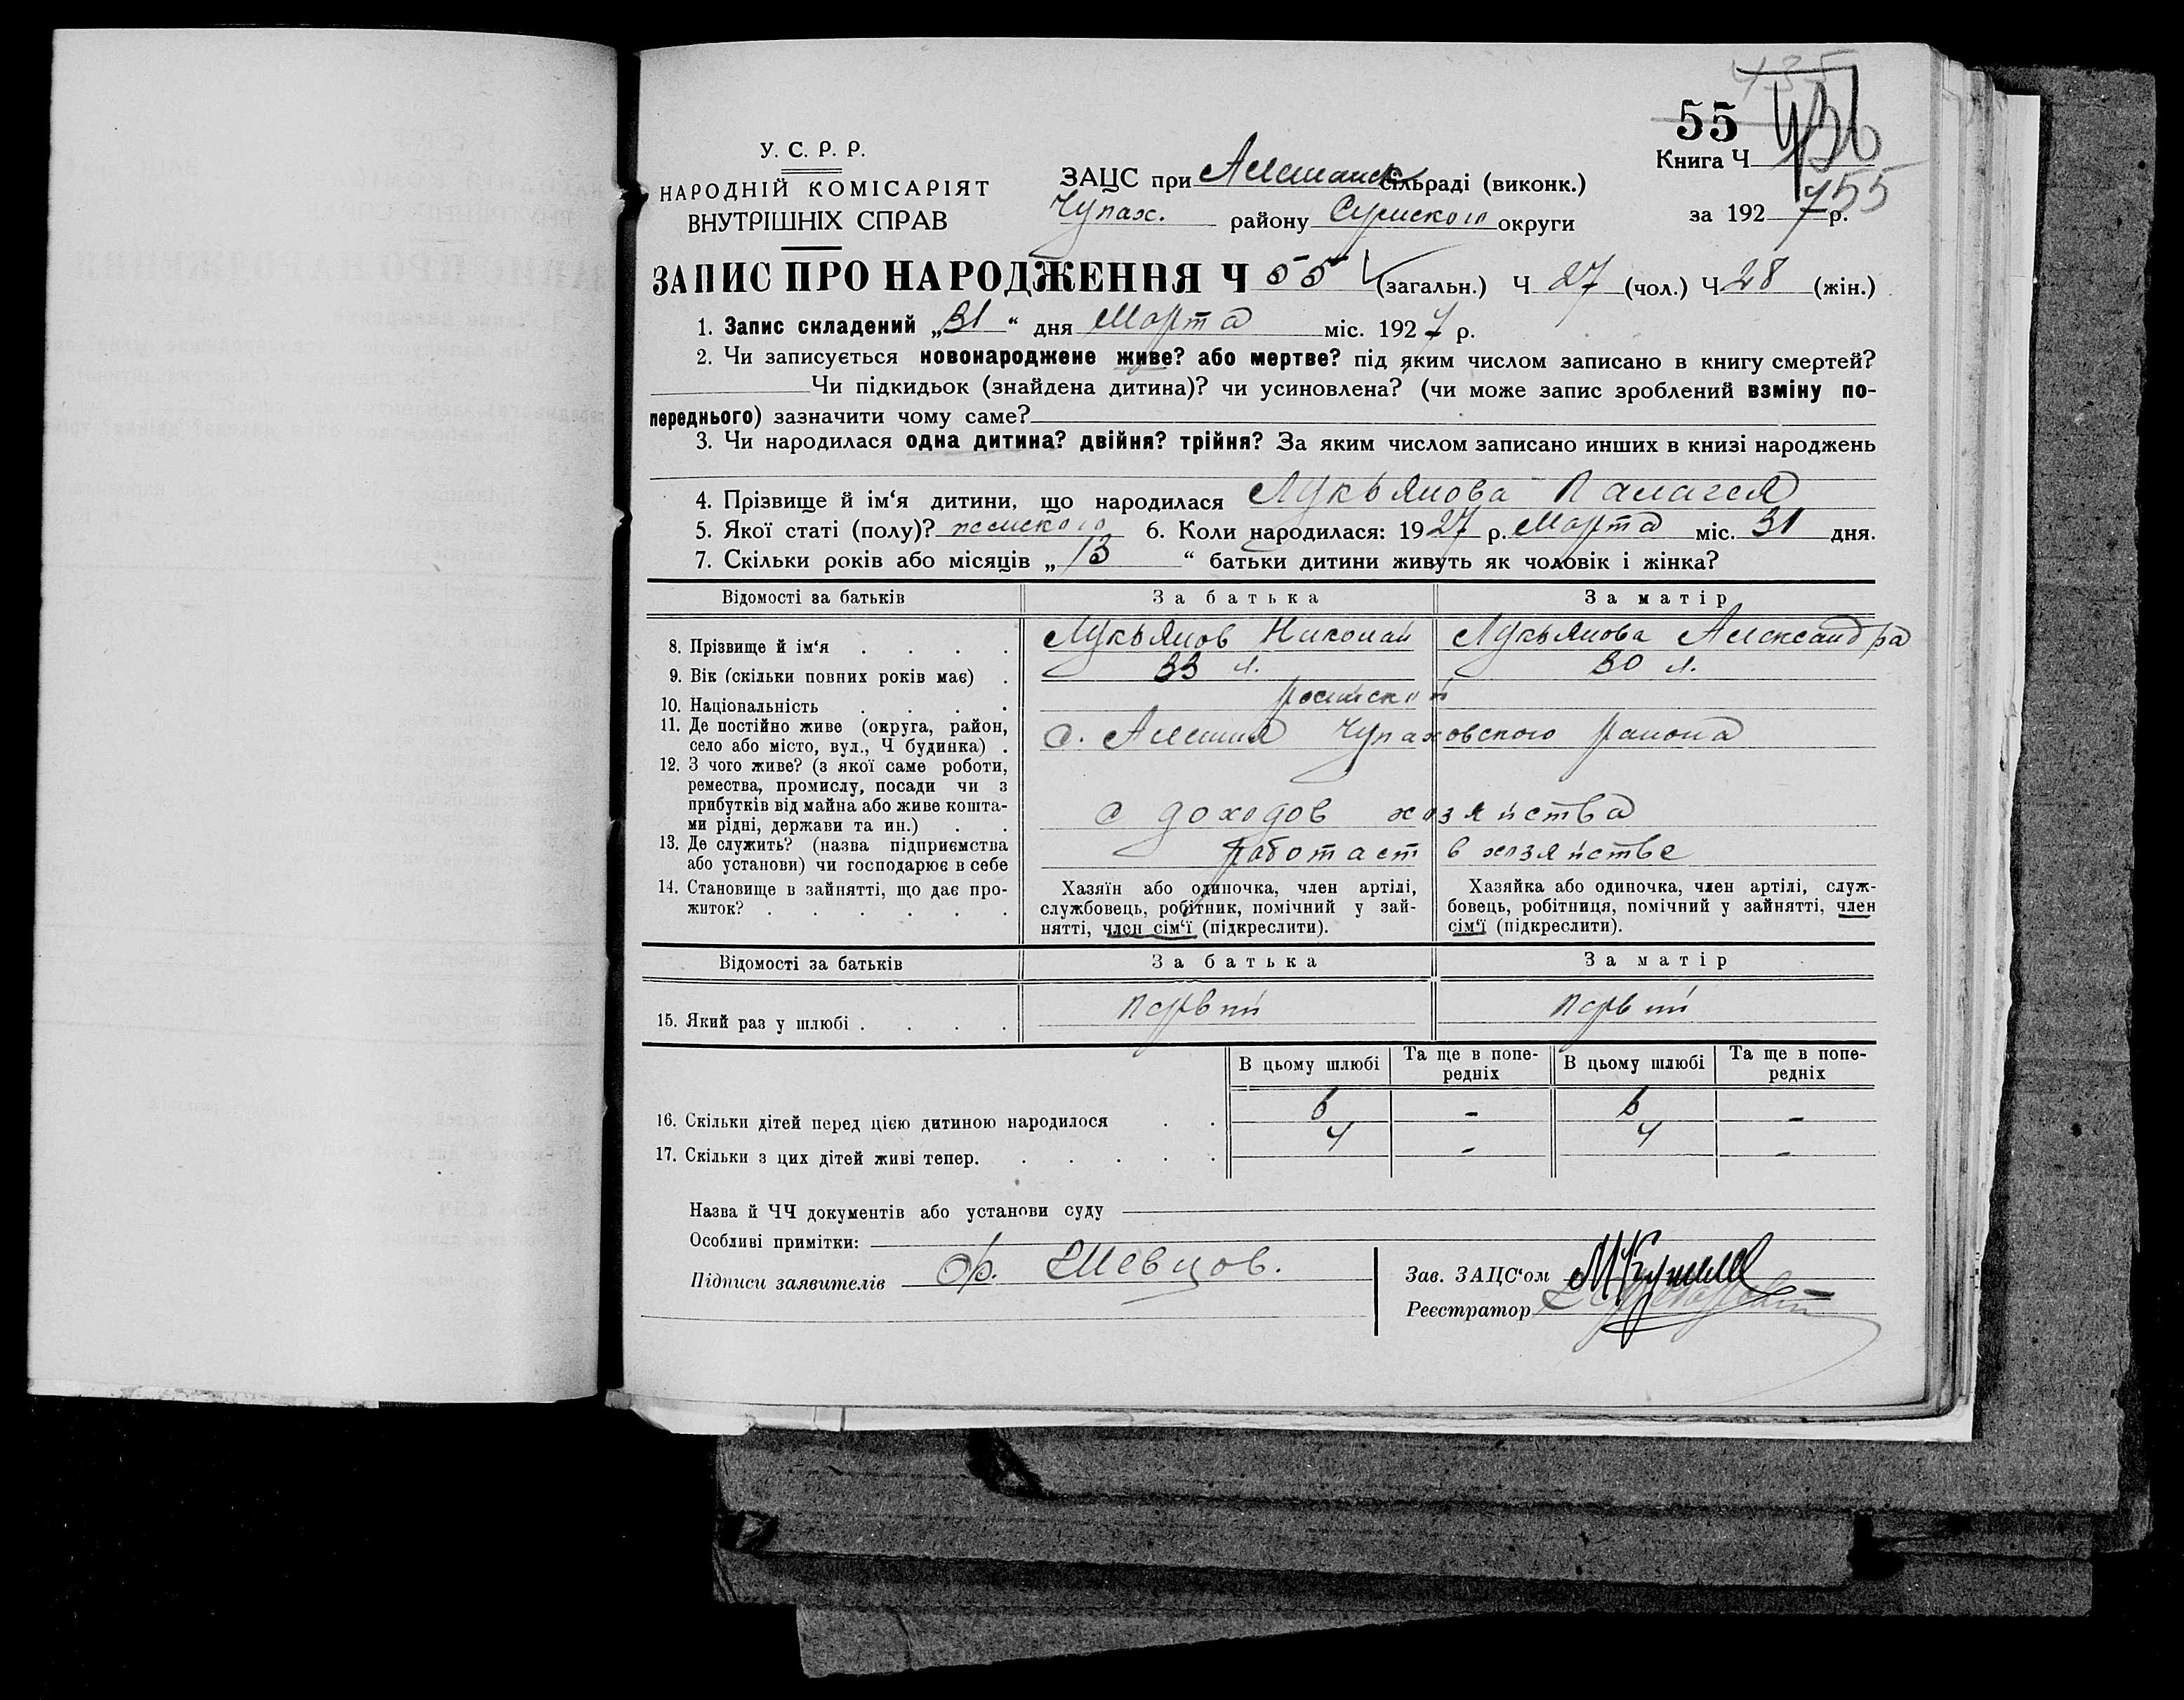 435
55 436
Книга Ч
455
У. С. Р. Р.
НАРОДНІЙ КОМІСАРІЯТ
ВНУТРІШНІХ СПРАВ
ЗАЦС при Алешанск сільраді (виконк.)
Чупах. району Сумского округи
за 1927 р.
ЗАПИС ПРО НАРОДЖЕННЯ Ч 55 (загальн.) Ч 27 (чол.) Ч 28 (жін.)
1. Запис складений „31“ дня Марта міс. 1927 р.
2. Чи записується новонароджене живе? або мертве? під яким числом записано в книгу смертей?
Чи підкидьок (знайдена дитина)? чи усиновлена? (чи може запис зроблений взміну по-
переднього) зазначити чому саме?
3. Чи народилася одна дитина? двійня? трійня? За яким числом записано инших в книзі народжень
4. Прізвище й ім‘я дитини, що народилася Лукьянова Палагея
5. Якої статі (полу)? женского 6. Коли народилася: 1927 р. Марта міс. 31 дня.
7. Скільки років або місяців „ 13 “ батьки дитини живуть як чоловік і жінка?
Відомості за батьків За батька За матір
8. Прізвище й ім‘я . . . . Лукьянов Николай Лукьянова Александра
9. Вік (скільки повних років має) . 33 л. 30 л.
10. Національність . . . .
11. Де постійно живе (округа, район,
село або місто, вул., Ч будинка) . с. Алешня Чупаховского района
12. З чого живе? (з якої саме роботи,
ремества, промислу, посади чи з
прибутків від майна або живе кошта-
ми рідні, держави та ин.) . . с доходов хозяйства
13. Де служить? (назва підприємства
або установи) чи господарює в себе работает в хозяйстве
14. Становище в зайнятті, що дає про-
житок? . . . . . .
Хазяїн або одиночка, член артілі,
службовець, робітник, помічний у зай-
нятті, член сім‘ї (підкреслити).
Хазяйка або одиночка, член артілі, служ-
бовець, робітниця, помічний у зайнятті, член
сім‘ї (підкреслити).
Відомості за батьків За батька За матір
15. Який раз у шлюбі . . . . первий первий
В цьому шлюбі Та ще в попе-
редніх В цьому шлюбі Та ще в попе-
редніх
16. Скільки дітей перед цією дитиною народилося . . 6 - 6 -
17. Скільки з цих дітей живі тепер. . . . . . 4 - 4 -
Назва й ЧЧ документів або установи суду
Особливі примітки:
Підписи заявителів Ф. Шевцов.
Зав. ЗАЦС‘ом
Реєстратор